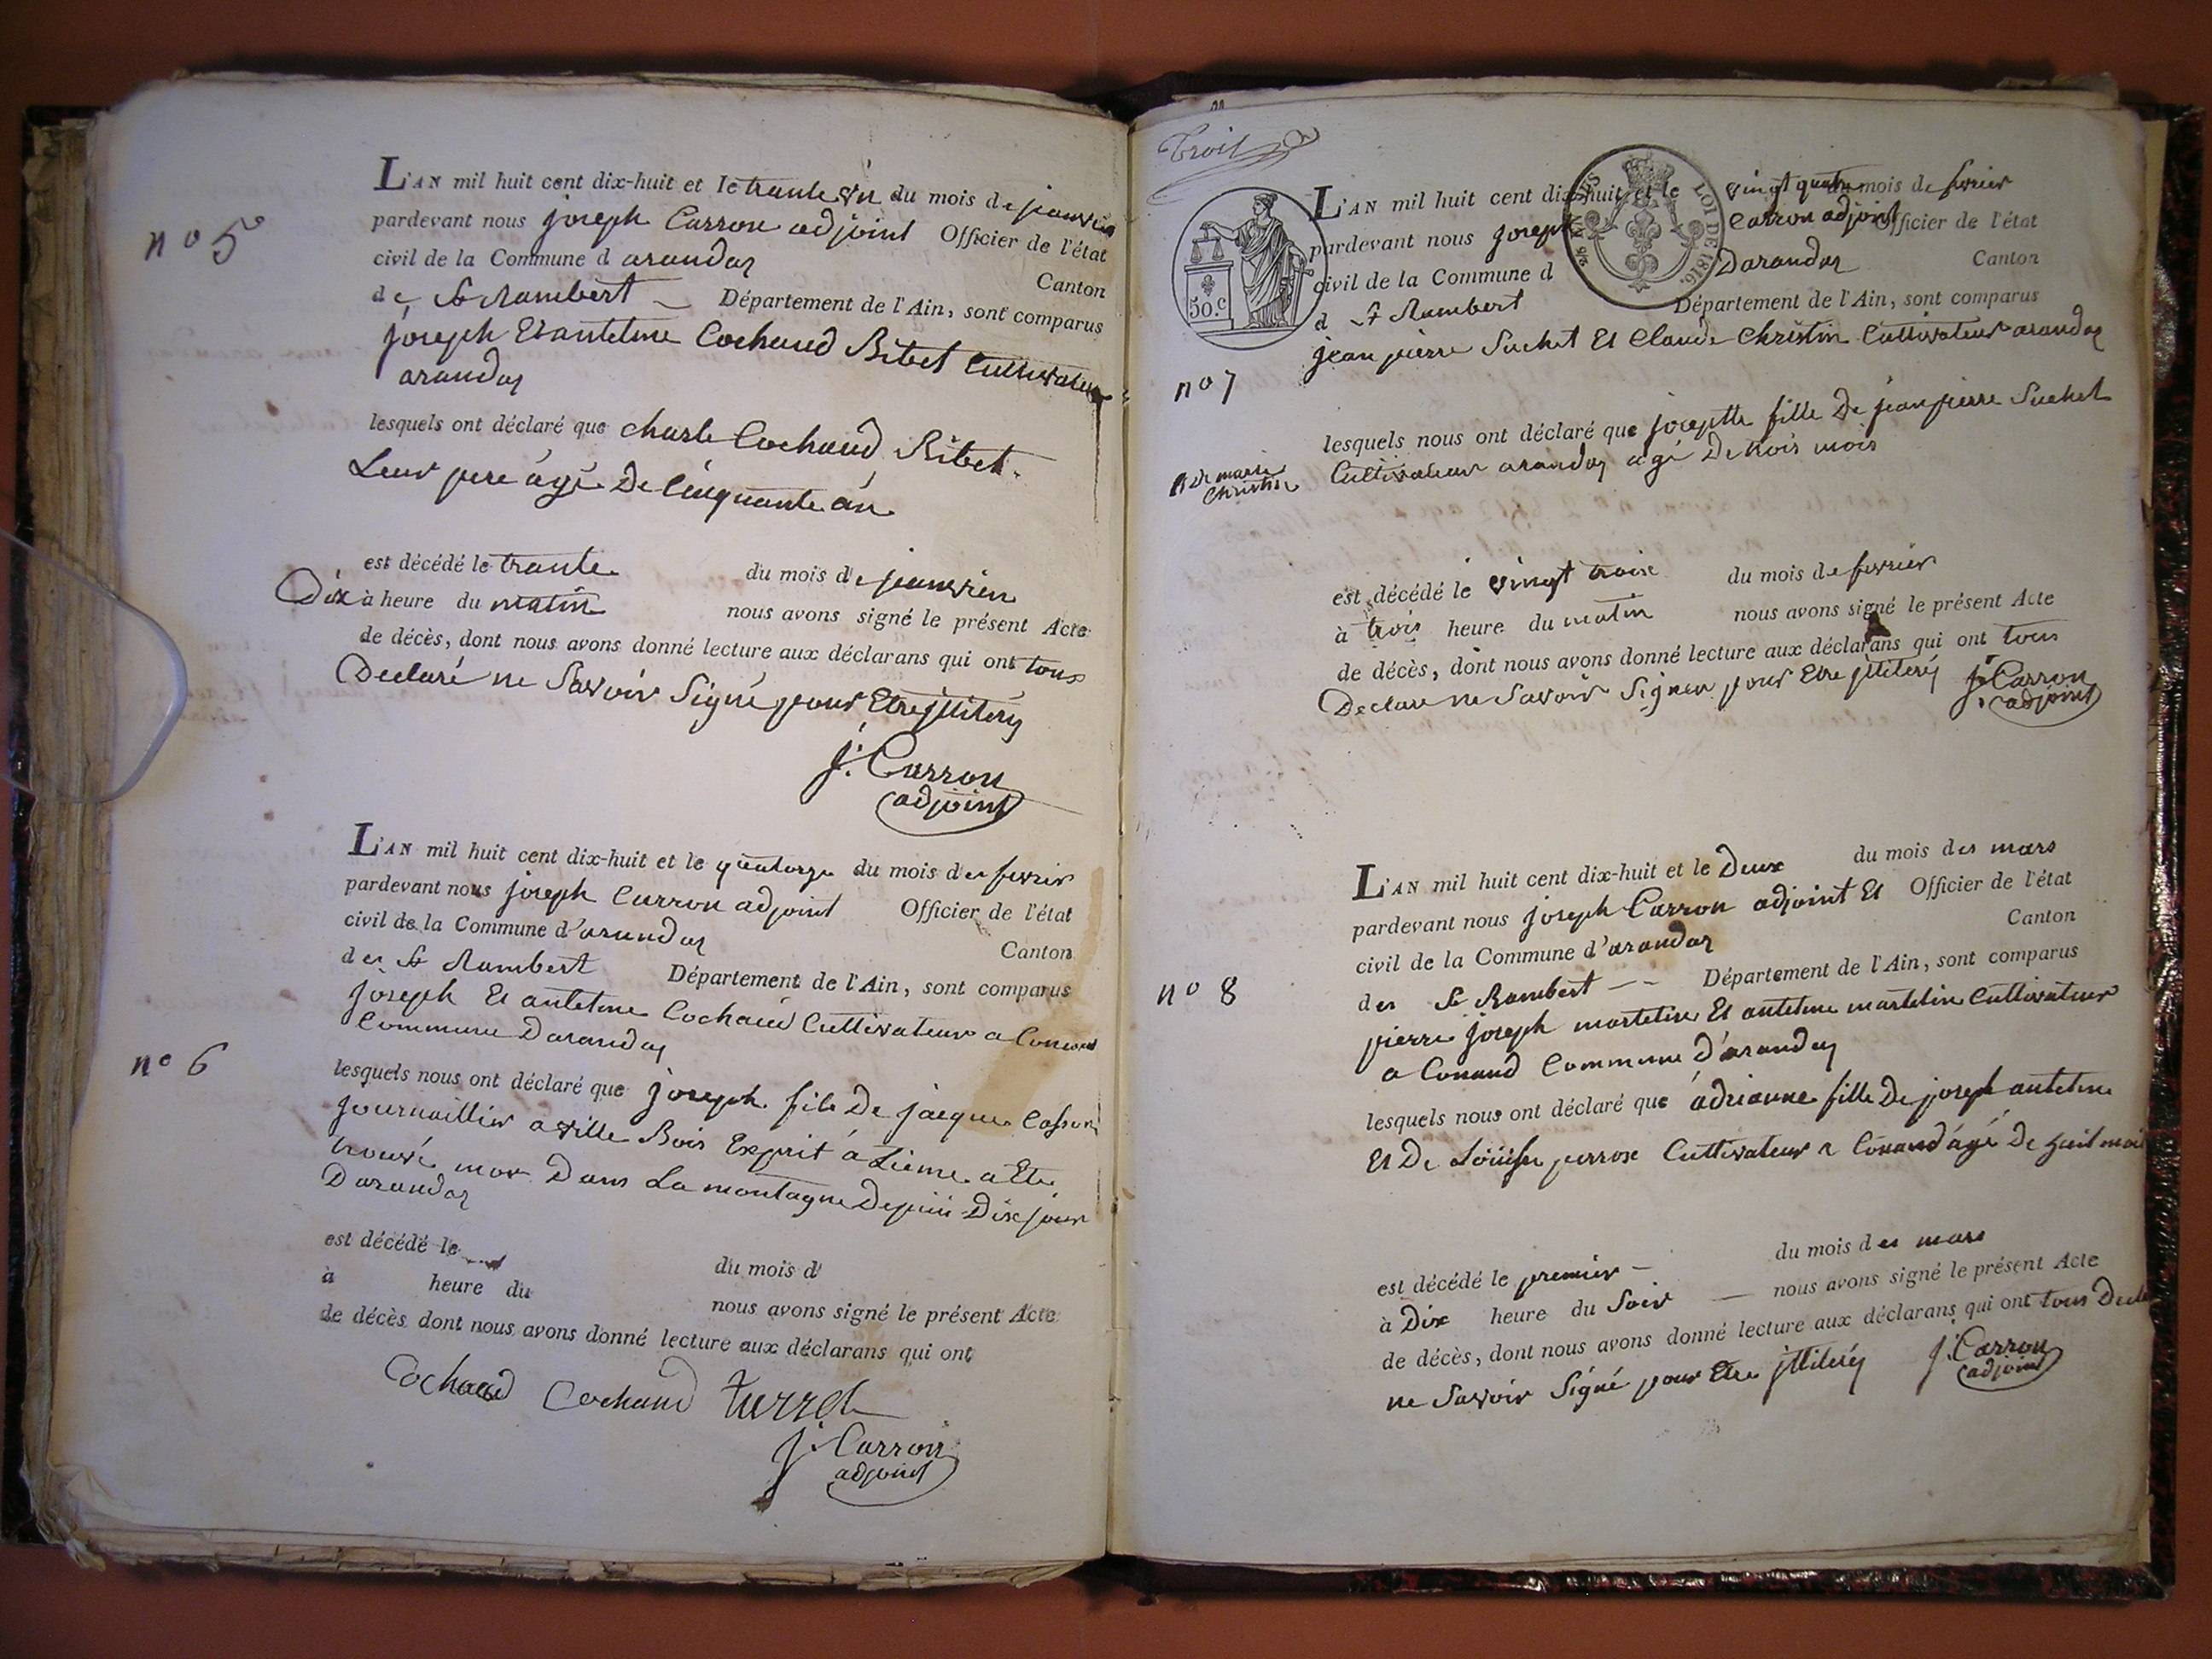 n° 5
L'AN mil huit cent dix-huit et le trante un du mois de janvier
pardevant nous joseph Carron adjoint Officier de l'état
civil de la Commune d arandas
Canton
de St Rambert Département de l'Ain, sont comparus
joseph Et antelme Cochaud Ribet Cultivateur
arandas
lesquels ont déclaré que charle Cochaud Ribet
Leur pere agé De Cinquante an
est décédé le trante du mois de janvier
Dix à heure du matin nous avons signé le présent Acte
de décès, dont nous avons donné lecture aux déclarans qui ont tous
Declaré ne Savoir Signé pour Etre jlliterés
j. Carron
adjoint
n° 6
L'AN mil huit cent dix-huit et le quatorze du mois de fevrier
pardevant nous joseph Carron adjoint Officier de l'état
civil de la Commune d'arandas
Canton
de St Rambert Département de l'Ain, sont comparus
joseph Et antelme Cochaud Cultivateur a Conand
Commune Darandas
lesquels nous ont déclaré que joseph fils De jacque
journaillier a ville Bois Exprit á a Ete
trouvé mor Dans La montagne Depuis Dix jour
Darandas
est décédé le
du mois d
à heure du
nous avons signé le présent Acte
de décès dont nous avons donné lecture aux déclarans qui ont
Cochaud Cochaud turrel
j. Carron
adjoint
Trois
50.C
LOI DE 1816.
L'AN mil huit cent dix-huit et le vingt quatre mois de fevrier
pardevant nous joseph Carron adjoint Officier de l'état
civil de la Commune d Darandas Canton
d St Rambert Département de l'Ain, sont comparus
jean pierre Suchet Et Claude Christin Cultivateur arandas
n° 7
lesquels nous ont déclaré que joseptte fille De jean pierre Suchet
Et De marie
Christin
Cultivateur arandas agé De trois mois
est décédé le vingt trois du mois de fevrier
à trois heure du matin nous avons signé le présent Acte
de décès, dont nous avons donné lecture aux déclarans qui ont tous
Declare ne Savoir Signer pour Etre jlliterés j. Carron
adjoint
L'AN mil huit cent dix-huit et le Deux du mois de mars
pardevant nous joseph Carron adjoint Et Officier de l'état
civil de la Commune d'arandas Canton
n° 8
de St Rambert Département de l'Ain, sont comparus
pierre joseph martelin Et antelme martelin Cultivateur
a Conand Commune d'arandas
lesquels nous ont déclaré que adrianne fille De joseph antelme
Et De Loüise perrox Cultivateur a Conand ágé De huit mois
est décédé le premier du mois de mars
à Dix heure du Soir nous avons signé le présent Acte
de décès, dont nous avons donné lecture aux déclarans qui ont tous
ne Savoir Signé pour Etre jlliterés j. Carron
adjoint